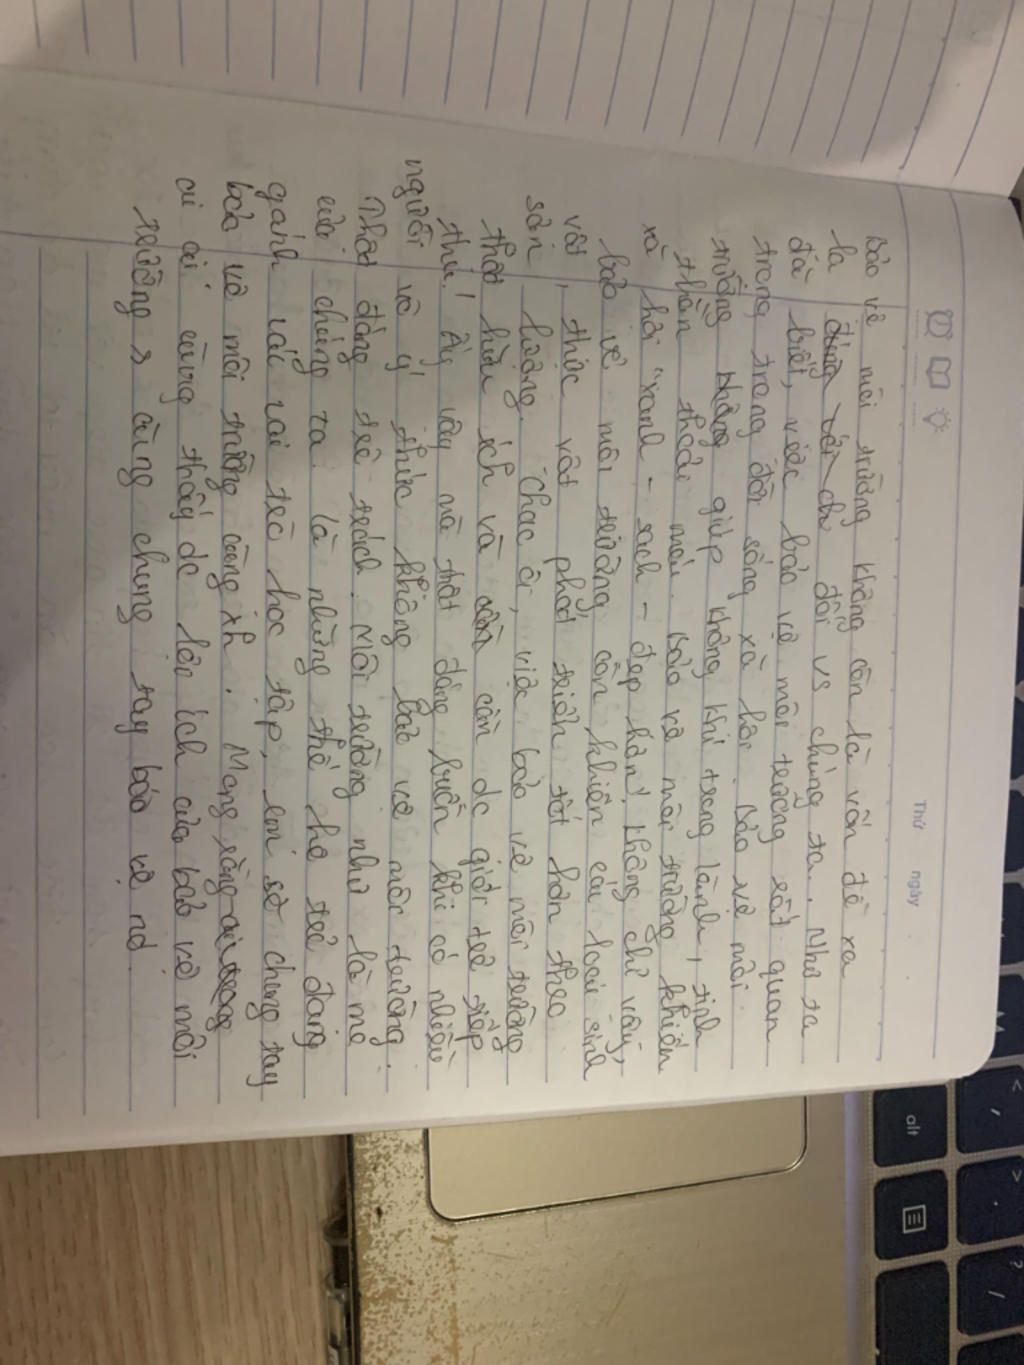 Thứ ngày
Bảo vệ môi trường không còn là vấn đề xa
lạ đối vs chúng ta. Như ta
đã biết, việc bảo vệ môi trường rất quan
trọng trong đời sống xã hội. Bảo vệ môi
trường không giúp không khí trong lành, tinh
thần thoải mái. Bảo vệ môi trường khiến
xã hội "xanh - sạch - đẹp" hơn. Không chỉ vậy,
bảo vệ môi trường còn khiến các loài sinh
vật, thực vật phát triển tốt hơn theo
sản lượng. Chac ơi, việc bảo vệ môi trường
thật hữu ích và cần dc giới trẻ tiếp
thu! Ấy vậy mà thật đáng buồn khi có nhiều
người vô ý thức không bảo vệ môi trường.
Thật đáng chê trách. Môi trường như là mẹ
của chúng ta. Là những thế hệ trẻ đang
gánh vác vai trò học tập, em sẽ chung tay
bảo vệ môi trường cùng xh. Mong rằng
ai ai cũng thấy dc lợi ích của bảo vệ môi
trường > cùng chung tay bảo vệ nó.
alt